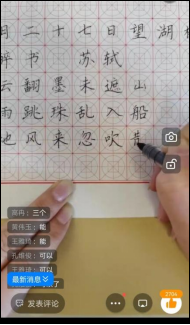 月二十七日望湖
醉书 苏轼
云翻墨未遮山
雨跳珠乱入船
地风来忽吹
吴冉：三个
莫伟玉：能
王雅琦：能
孔维振：可以
王雅琦：可以
最新消息
发表评论